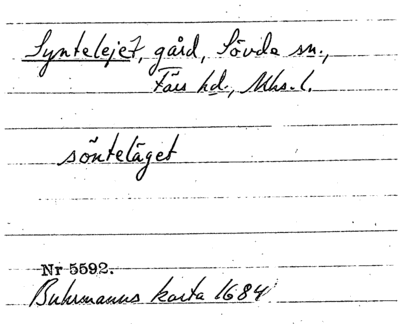 Syntelejet, gård, Sövde sn.,
Färs hd., Mhs. l.
sönteläget
Nr 5592.
Buhrmanns karta 1684